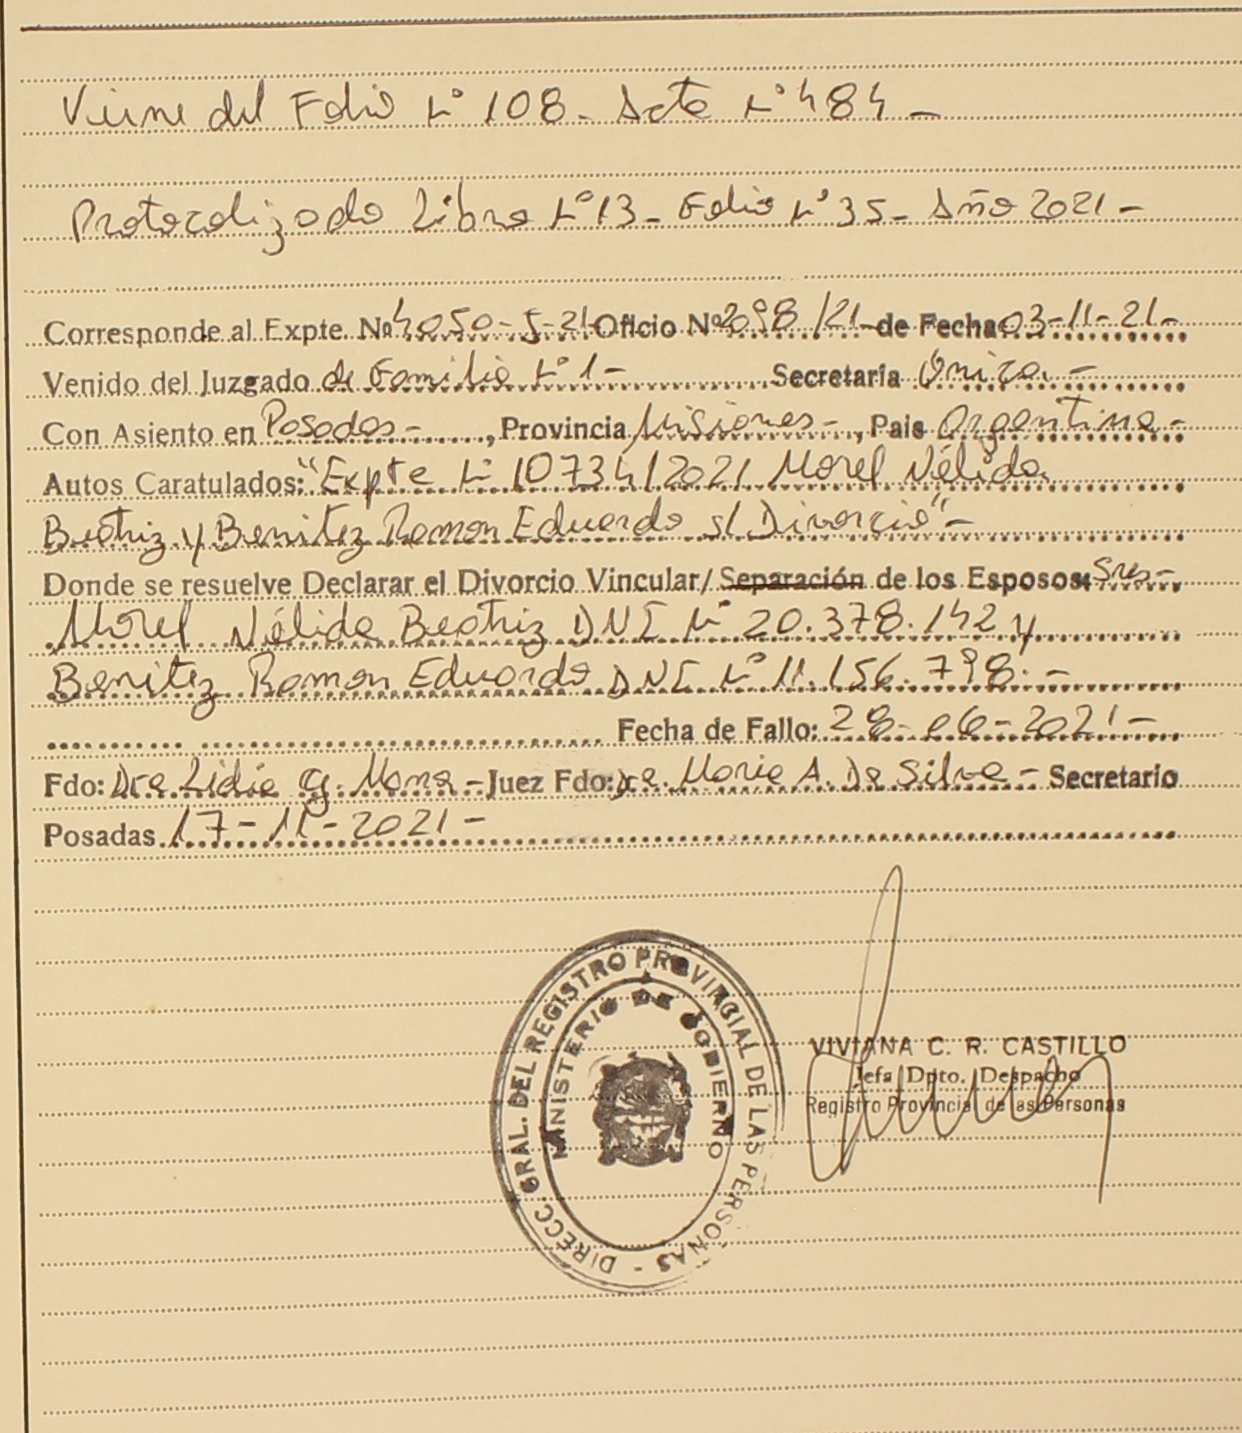 Viene del Folio N° 108 - Acta N° 484 -
Protocolizado Libro N° 13 - Folio N° 35 - Año 2021 -
Corresponde al Expte. Nº 4050-5-21 Oficio Nº 2098/21 - de Fecha 03-11-21-
Venido del Juzgado de Familia N° 1 - Secretaría Única. -
Con Asiento en Posadas -, Provincia Misiones -, Pais Argentina -
Autos Caratulados: "Expte N° 10734/2021 Morel Nélida
Beatriz y Benitez Ramon Eduardo s/ Divorcio" -
Donde se resuelve Declarar el Divorcio Vincular/ Separación de los Esposos: Sres -
Morel Nélida Beatriz DNI N° 20.378.142 y
Benitez Ramon Eduardo DNI N° 11.156.798. -
Fecha de Fallo: 28-06-2021 -
Fdo: Dra Lidia G. - Juez Fdo: Dra. Maria A. Da Silva - Secretario
Posadas 17-11-2021 -
DIRECC. GRAL. DEL REGISTRO PROVINCIAL DE LAS PERSONAS -
MINISTERIO DE GOBIERNO
VIVIANA C. R. CASTILLO
Jefa Dpto. Despacho
Registro Provincial de las Personas